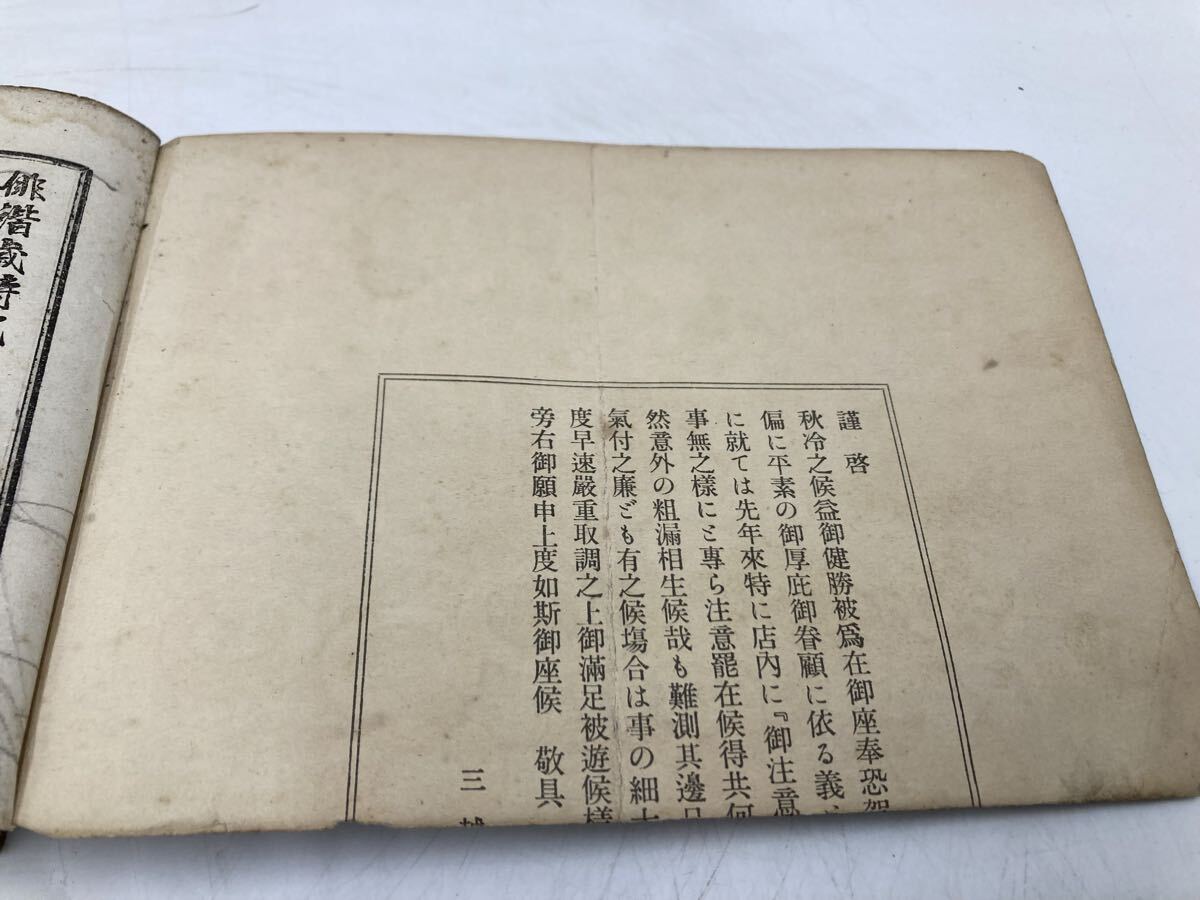 謹啓
秋冷之候益御健勝被爲在御座奉恐賀
偏に平素の御厚庇御眷顧に依る義
に就ては先年來特に店內に『御注意
事無之樣にと專ら注意罷在候得共何
然意外の粗漏相生候哉も難測其邊
氣付之廉ども有之候塲合は事の細
度早速嚴重取調之上御滿足被遊候樣
旁右御願申上度如斯御座候 敬具
三
俳諧歲時